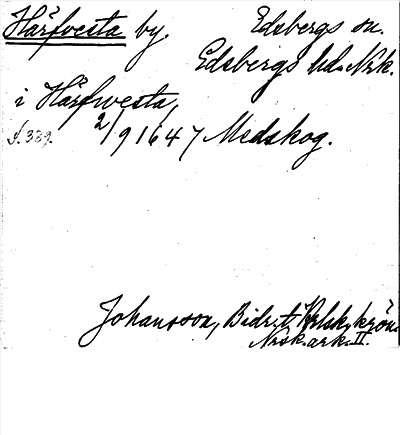 Härfvesta by. Edsbergs sn.
Edsbergs hd. Nrk.
i Härfwesta,
s. 339. 2/9 1647 Medskog.
Johansson, Bidr. t. Krlsk. krön.
Nrsk. ark. II.